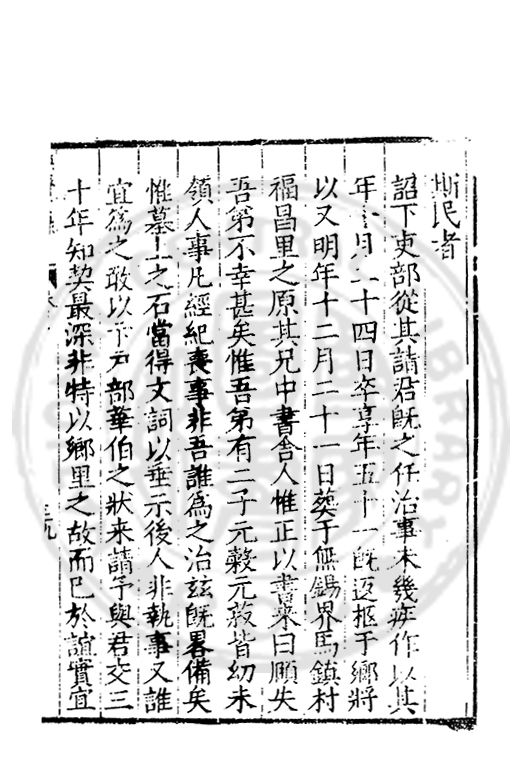 斯民者
詔下吏部從其請君旣之任治事未幾疾作以其
年 月二十四日卒享年五十一旣返柩于鄉將
以又明年十二月二十一日葬于無錫界馬鎮村
福昌里之原其兄中書舍人惟正以書來曰願失
吾弟不幸甚矣惟吾弟有二子元穀元蔎皆幼未
領人事凡經紀喪事非吾誰為之治玆旣畧備矣
惟墓上之石當得文詞以垂示後人非執事又誰
宜為之敢以予戶部華伯之狀来請予與君交三
十年知契最深非特以鄉里之故而已於誼實宜